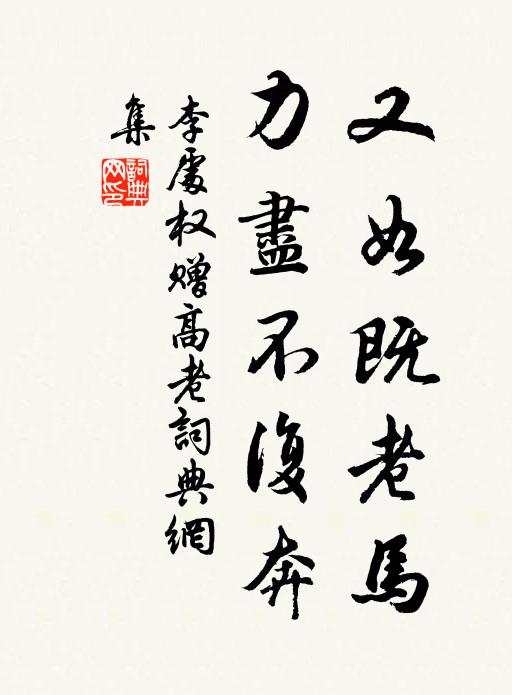 又如既老馬
力盡不復奔
李處权赠高老詞典網
集
詞典
网印